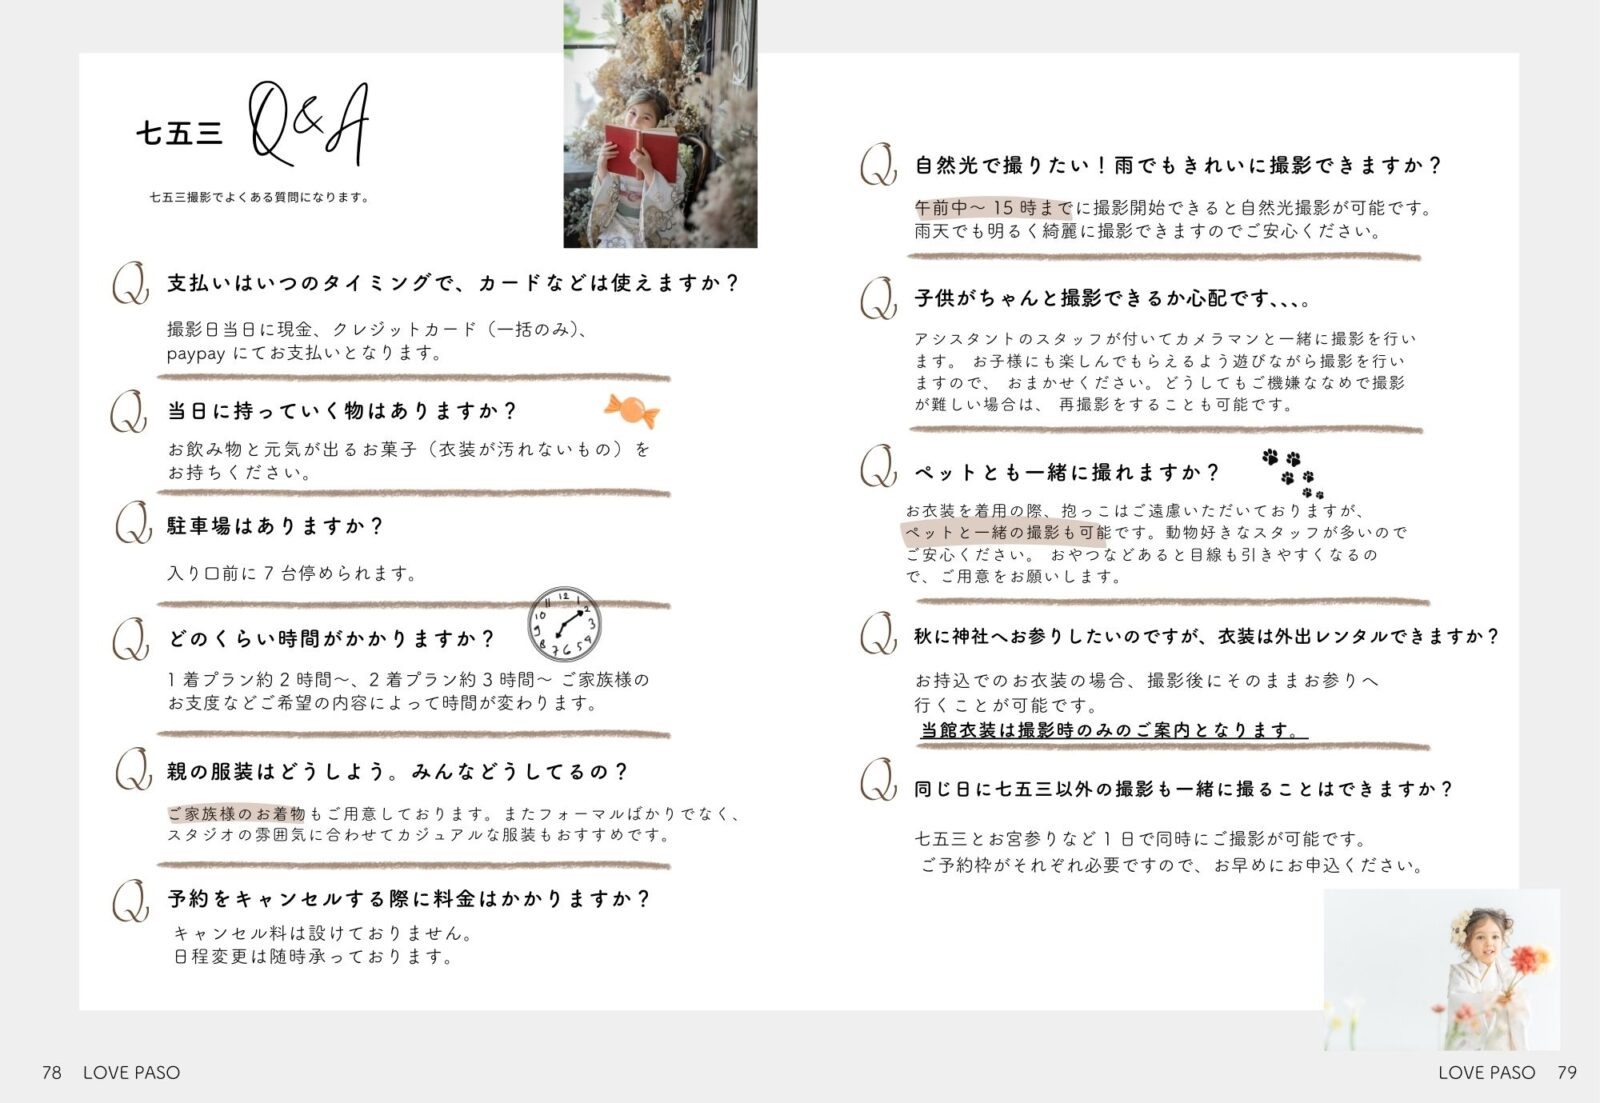 七五三 Q&A
七五三撮影でよくある質問になります。
Q 支払いはいつのタイミングで、カードなどは使えますか？
撮影日当日に現金、クレジットカード（一括のみ）、
paypay にてお支払いとなります。
Q 当日に持っていく物はありますか？
お飲み物と元気が出るお菓子（衣装が汚れないもの）を
お持ちください。
Q 駐車場はありますか？
入り口前に 7 台停められます。
Q どのくらい時間がかかりますか？
12 1 2 3 4 5 6 7 8 9 10 11
1 着プラン約 2 時間～、2 着プラン約 3 時間～ ご家族様の
お支度などご希望の内容によって時間が変わります。
Q 親の服装はどうしよう。みんなどうしてるの？
ご家族様のお着物もご用意しております。またフォーマルばかりでなく、
スタジオの雰囲気に合わせてカジュアルな服装もおすすめです。
Q 予約をキャンセルする際に料金はかかりますか？
キャンセル料は設けておりません。
日程変更は随時承っております。
78 LOVE PASO
Q 自然光で撮りたい！雨でもきれいに撮影できますか？
午前中～ 15 時までに撮影開始できると自然光撮影が可能です。
雨天でも明るく綺麗に撮影できますのでご安心ください。
Q 子供がちゃんと撮影できるか心配です、、、。
アシスタントのスタッフが付いてカメラマンと一緒に撮影を行い
ます。 お子様にも楽しんでもらえるよう遊びながら撮影を行い
ますので、 おまかせください。どうしてもご機嫌ななめで撮影
が難しい場合は、 再撮影をすることも可能です。
Q ペットとも一緒に撮れますか？
お衣装を着用の際、抱っこはご遠慮いただいておりますが、
ペットと一緒の撮影も可能です。動物好きなスタッフが多いので
ご安心ください。 おやつなどあると目線も引きやすくなるの
で、ご用意をお願いします。
Q 秋に神社へお参りしたいのですが、衣装は外出レンタルできますか？
お持込でのお衣装の場合、撮影後にそのままお参りへ
行くことが可能です。
当館衣装は撮影時のみのご案内となります。
Q 同じ日に七五三以外の撮影も一緒に撮ることはできますか？
七五三とお宮参りなど 1 日で同時にご撮影が可能です。
ご予約枠がそれぞれ必要ですので、お早めにお申込ください。
LOVE PASO 79